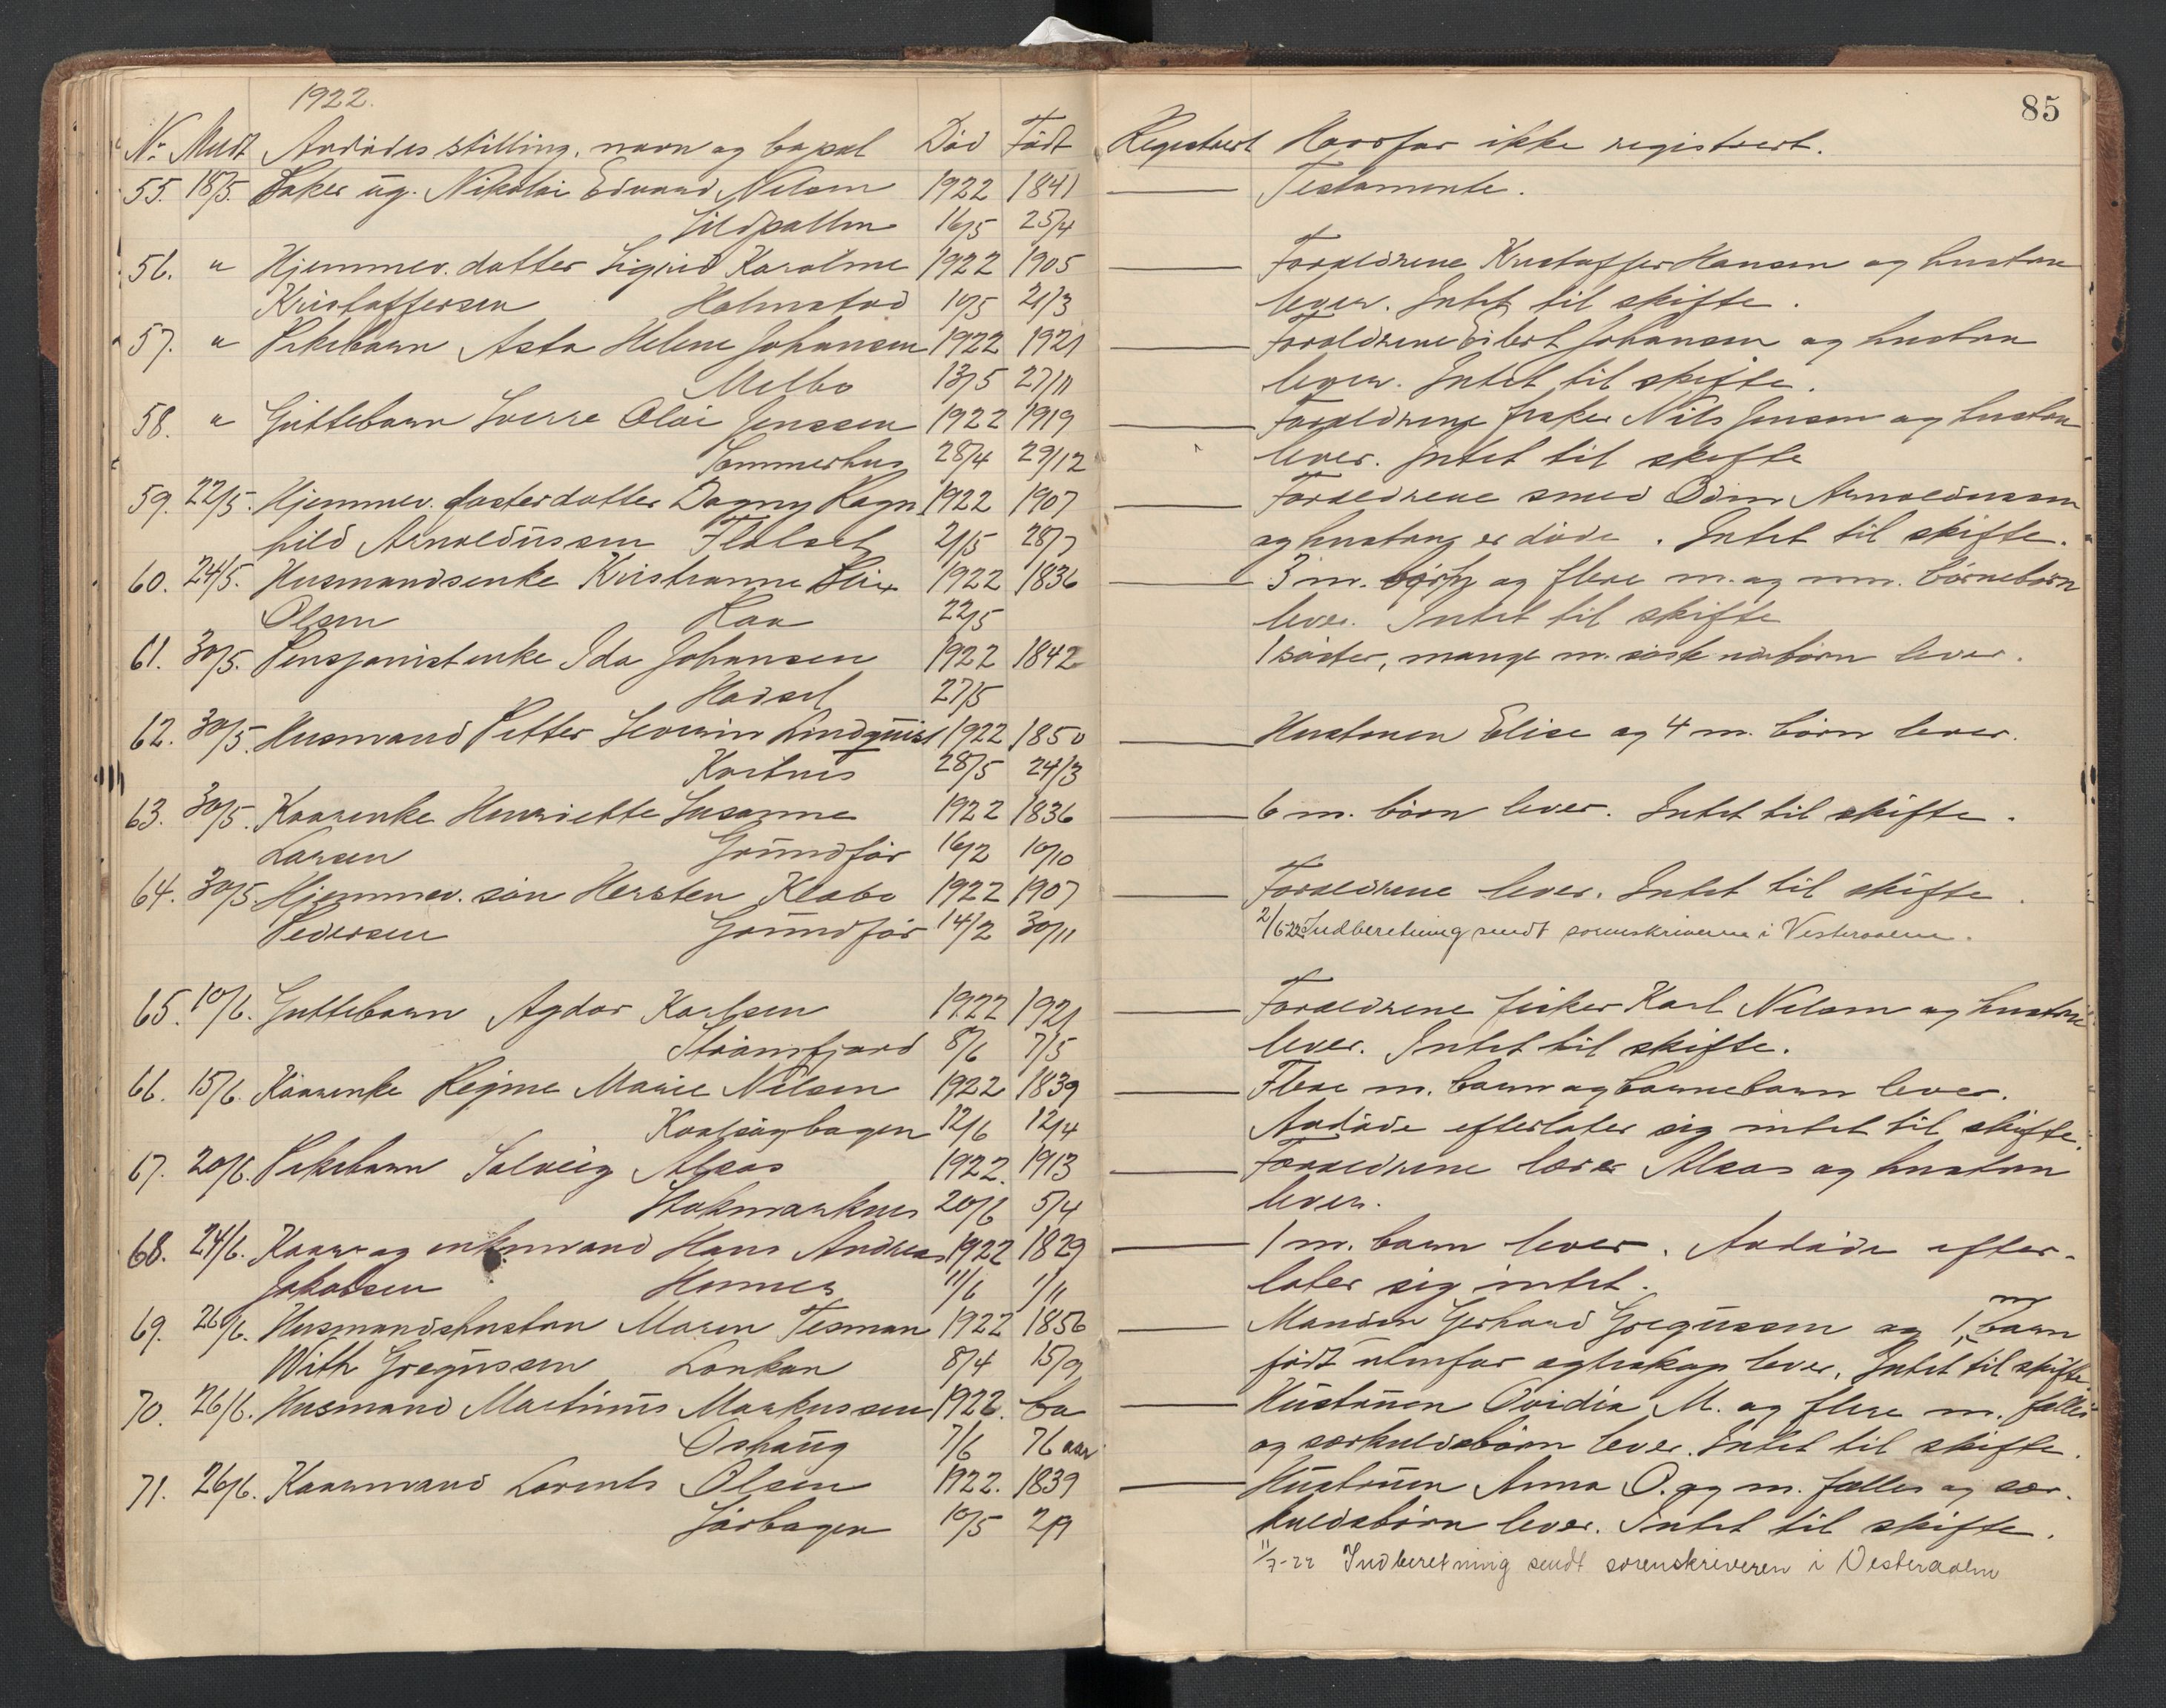 85
1922.
Nr. Meldt Avdødes stilling, navn og bopæl Død Født Registrert Hvorfor ikke registrert.
55. 18/5. Fisker ug. Nikolai Edvard Nilsen 1922 1841 Testamente.
Sildpollen 16/5 25/4
56. " Hjemmev. datter Sigrid Karoline 1922 1905 Forældrene Kristoffer Hansen og hustru
Kristoffersen Holmstad 10/5 21/3 lever. Intet til skifte.
57. " Pikebarn Asta Helene Johansen 1922 1921 Forældrene Eilert Johansen og hustru
Melbo 13/5 27/11 lever. Intet til skifte.
58. " Guttebarn Sverre Olai Jenssen 1922 1919 Forældrene fisker Nils Jensen og hustru
Sommerhus 28/4 29/12 lever. Intet til skifte
59. 22/5. Hjemmev. fosterdatter Dagny Ragn 1922 1907 Forældrene smed Odin Arnoldussen
hild Arnoldussen Flålset 2/5 28/7 og hustru er døde. Intet til skifte.
60. 24/5. Husmandsenke Kristianne 1922 1836 3 m. børn og flere m. og um. børnebørn
Olsen Raa 22/5 lever. Intet til skifte
61. 30/5. Pensjonistenke Ida Johansen 1922 1842 1 søster, mange m. søskendebørn lever.
Hadsel 27/5
62. 30/5. Husmand Petter Severin Lindquist 1922 1850 Hustruen Elise og 4 m. børn lever.
Kortnes 28/5 24/3
63. 30/5. Kaarenke Henriette Susanne 1922 1836 6 m. børn lever. Intet til skifte.
Larsen Grundfør 16/2 10/10
64. 30/5. Hjemmev. søn Hersten Klabo 1922 1907 Forældrene lever. Intet til skifte.
Pedersen Grundfør 14/2 30/11 2/6 22 Indberetning sendt sorenskriveren i Vesteraalen.
65. 10/6. Guttebarn Agdor Karlsen 1922 1921 Forældrene fisker Karl Nilsen og hustru
Strømfjord 8/6 7/5 lever. Intet til skifte.
66. 15/6. Kaarenke Regine Marie Nilsen 1922 1839 Flere m. barn og barnebarn lever.
12/6 12/4 Avdøde efterlater sig intet til skifte.
67. 20/6. Pikebarn Solveig Alsos 1922. 1913 Forældrene lærer Alsos og hustru
Stokmarknes 20/6 5/4 lever.
68. 24/6. Kaar- og enkemand Hans Andreas 1922 1829 1 m. barn lever. Avdøde efter-
Jakobsen Hennes 11/6 1/11 later sig intet.
69. 26/6. Husmandshustru Maren Tesman 1922 1856 Manden Gerhard Gregussen og 1 m barn
With Gregussen Lonkan 8/4 15/9 født utenfor egteskap lever. Intet til skifte.
70. 26/6. Husmand Martinus Markussen 1922. ca Hustruen Ovidia M. og flere m. fælles
Oshaug 7/6 76 aar og særkuldsbørn lever. Intet til skifte.
71. 26/6. Kaarmand Lorents Olsen 1922. 1839 Hustruen Anna O. og m. fælles og sær-
Sørbøgen 10/5 2/9 kuldsbørn lever. Intet til skifte.
11/7-22 Indberetning sendt sorenskriveren i Vesteraalen